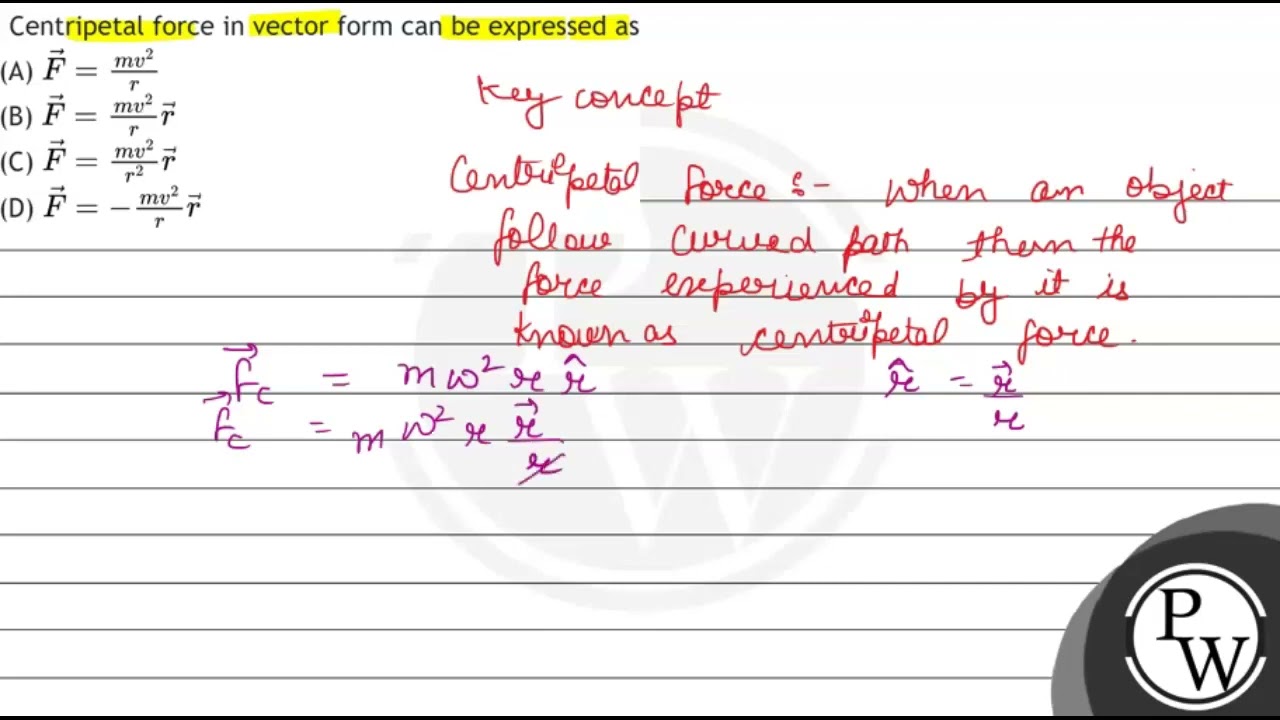 Centripetal force in vector form can be expressed as
(A) $\vec{F} = \frac{mv^2}{r}$
(B) $\vec{F} = \frac{mv^2}{r}\vec{r}$
(C) $\vec{F} = \frac{mv^2}{r^2}\vec{r}$
(D) $\vec{F} = -\frac{mv^2}{r}\vec{r}$
Key concept
Centripetal force :- when an object
follow curved path them the
force experienced by it is
known as centripetal force.
$\vec{F}_c = m\omega^2 r \hat{r}$ $\hat{r} = \frac{\vec{r}}{r}$
$\vec{F}_c = m\omega^2 r \frac{\vec{r}}{r}$
PW